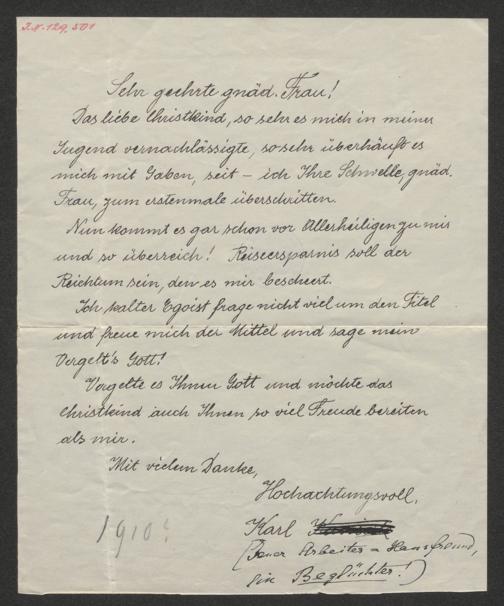 I.N. 129.501
Sehr geehrte gnäd. Frau!
Das liebe Christkind, so sehr es mich in meiner
Jugend vernachlässigte, so sehr überhäuft es
mich mit Gaben, seit – ich Ihre Schwelle, gnäd.
Frau, zum erstenmale überschritten.
Nun kommt es gar schon vor Allerheiligen zu mir
und so überreich! Reiseersparnis soll der
Reichtum sein, den es mir beschert.
Ich kalter Egoist frage nicht viel um den Titel
und freue mich der Mittel und sage mein
Vergelt's Gott!
Vergelte es Ihnen Gott und möchte das
Christkind auch Ihnen so viel Freude bereiten
als mir.
Mit vielem Danke,
Hochachtungsvoll,
Karl
(Ihr Arbeiter u Hausfreund,
ein Beglückter!)
1910?